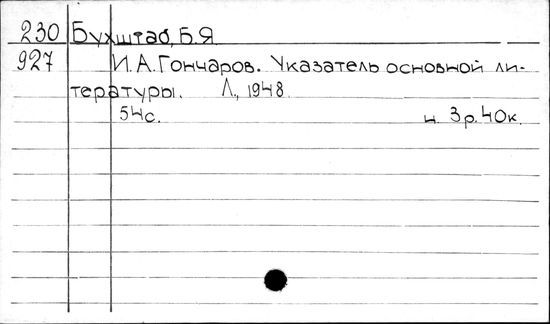 230 Бухштаб, Б.Я.
927 И.А.Гончаров. Указатель основной ли-
тературы. Л., 1948
54с. ц. 3р.40к.